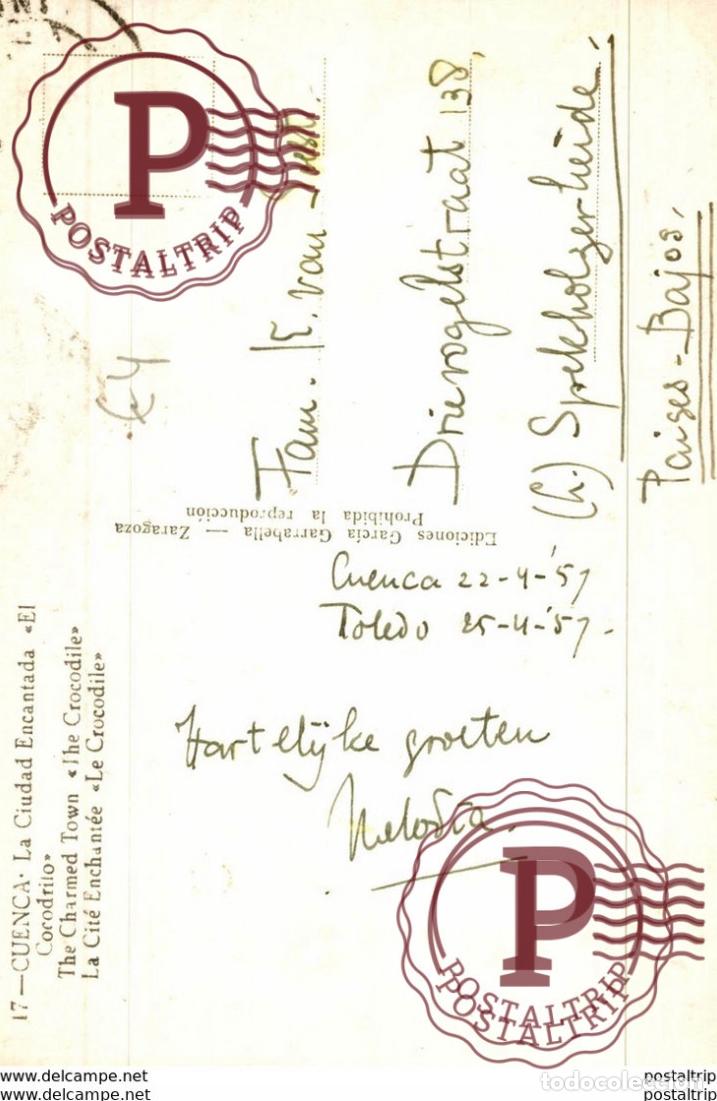 17—CUENCA· La Ciudad Encantada «El
Cocodrilo»
The Charmed Town «The Crocodile»
La Cité Enchantée «Le Crocodile»
Ediciones García Garrabella — Zaragoza
Prohibida la reproducción
Cuenca 22-4-'57
Toledo 25-4-'57-
Hartelijke groeten
Fam. K. van
Drievogelstraat 138.
(L.) Spekholzerheide.
Paises-Bajos.
P
POSTALTRIP
P
POSTALTRIP
POSTALTRIP
www.ebay.com/str/delcampe.net postaltrip